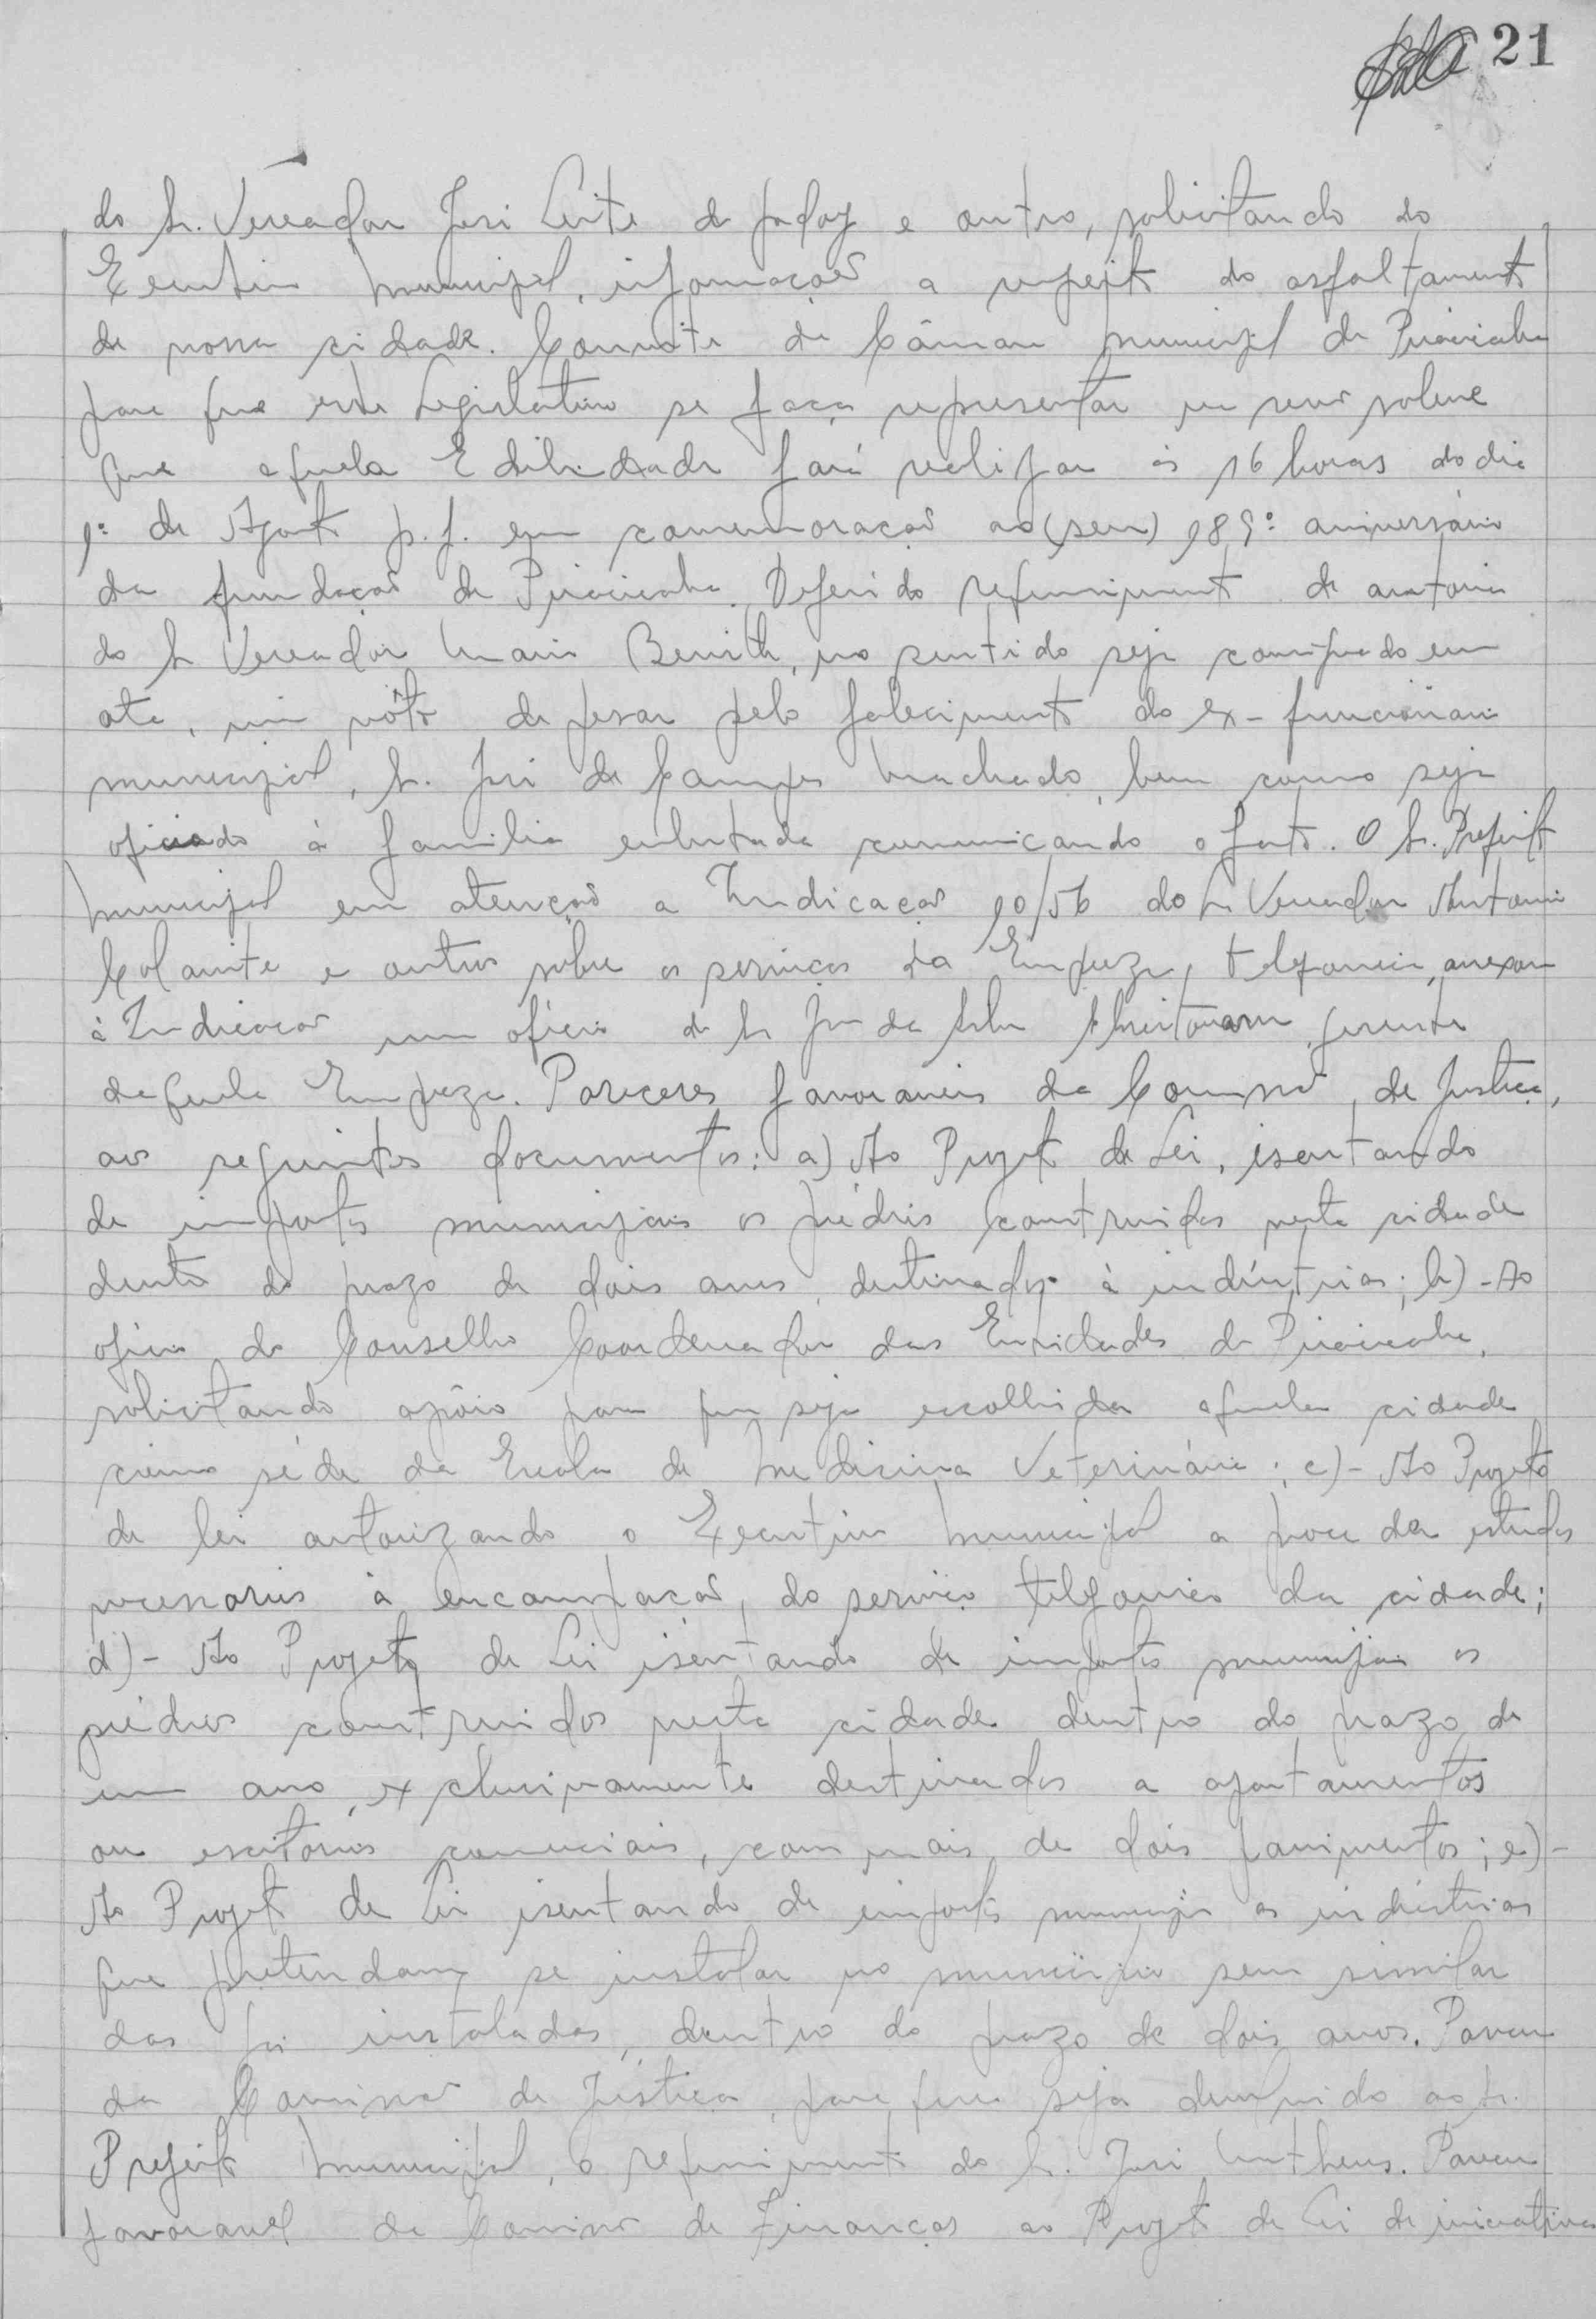 21
do Sr. Vereador José Leite de Godoy e outro, solicitando do
Executivo Municipal, informações a respeito do asfaltamento
de nossa cidade. Convite da Câmara Municipal de Piracicaba
para que este Legislativo se faça representar em sessão solene
que aquela Edilidade fará realizar ás 16 horas do dia
1º de Agosto p.f. em comemoração ao (seu) 189º aniversário
da fundação de Piracicaba. Deferido requerimento de autoria
do Sr Vereador Mario no sentido seja consignado em
ata, um vôto de pesar pelo falecimento do ex-funcionário
municipal, Sr. José de Campos Machado, bem como seja
oficiado à familia enlutada comunicando o fato. O Sr. Prefeito
Municipal em atenção a Indicação 10/56 do Sr Vereador Antonio
e outros sobre os serviços da Empreza telefonica, anexou
à Indicação um oficio do Sr da Silva gerente
daquela Empreza. Pareceres favoraveis da Comissão de Justiça,
aos seguintes documentos: a) Ao Projeto de Lei, isentando
de impostos municipais os prédios construidos nesta cidade
dentro do prazo de dois anos, destinados à indústrias; b) - Ao
oficio do Conselho Coordenador das Entidades de Piracicaba,
solicitando apôio para que seja escolhida aquela cidade
como séde da Escola de Medicina Veterinária; c) - Ao Projeto
de lei autorizando o Executivo Municipal a proceder estudos
necessarios à encampação do serviço telefonico da cidade;
d) - Ao Projeto de Lei isentando de impostos municipais os
prédios construidos nesta cidade dentro do prazo de
um ano, exclusivamente destinados a apartamentos
ou escritórios comerciais, com mais de dois pavimentos; e) -
Ao Projeto de Lei isentando de impostos municipais as indústrias
que pretendam se instalar no município sem similar
das já instaladas, dentro do prazo de dois anos. Parecer
da Comissão de Justiça, para que seja ao Sr.
Prefeito Municipal, o requerimento do Sr. José Matheus. Parecer
favoravel da Comissão de Finanças ao Projeto de Lei de iniciativa